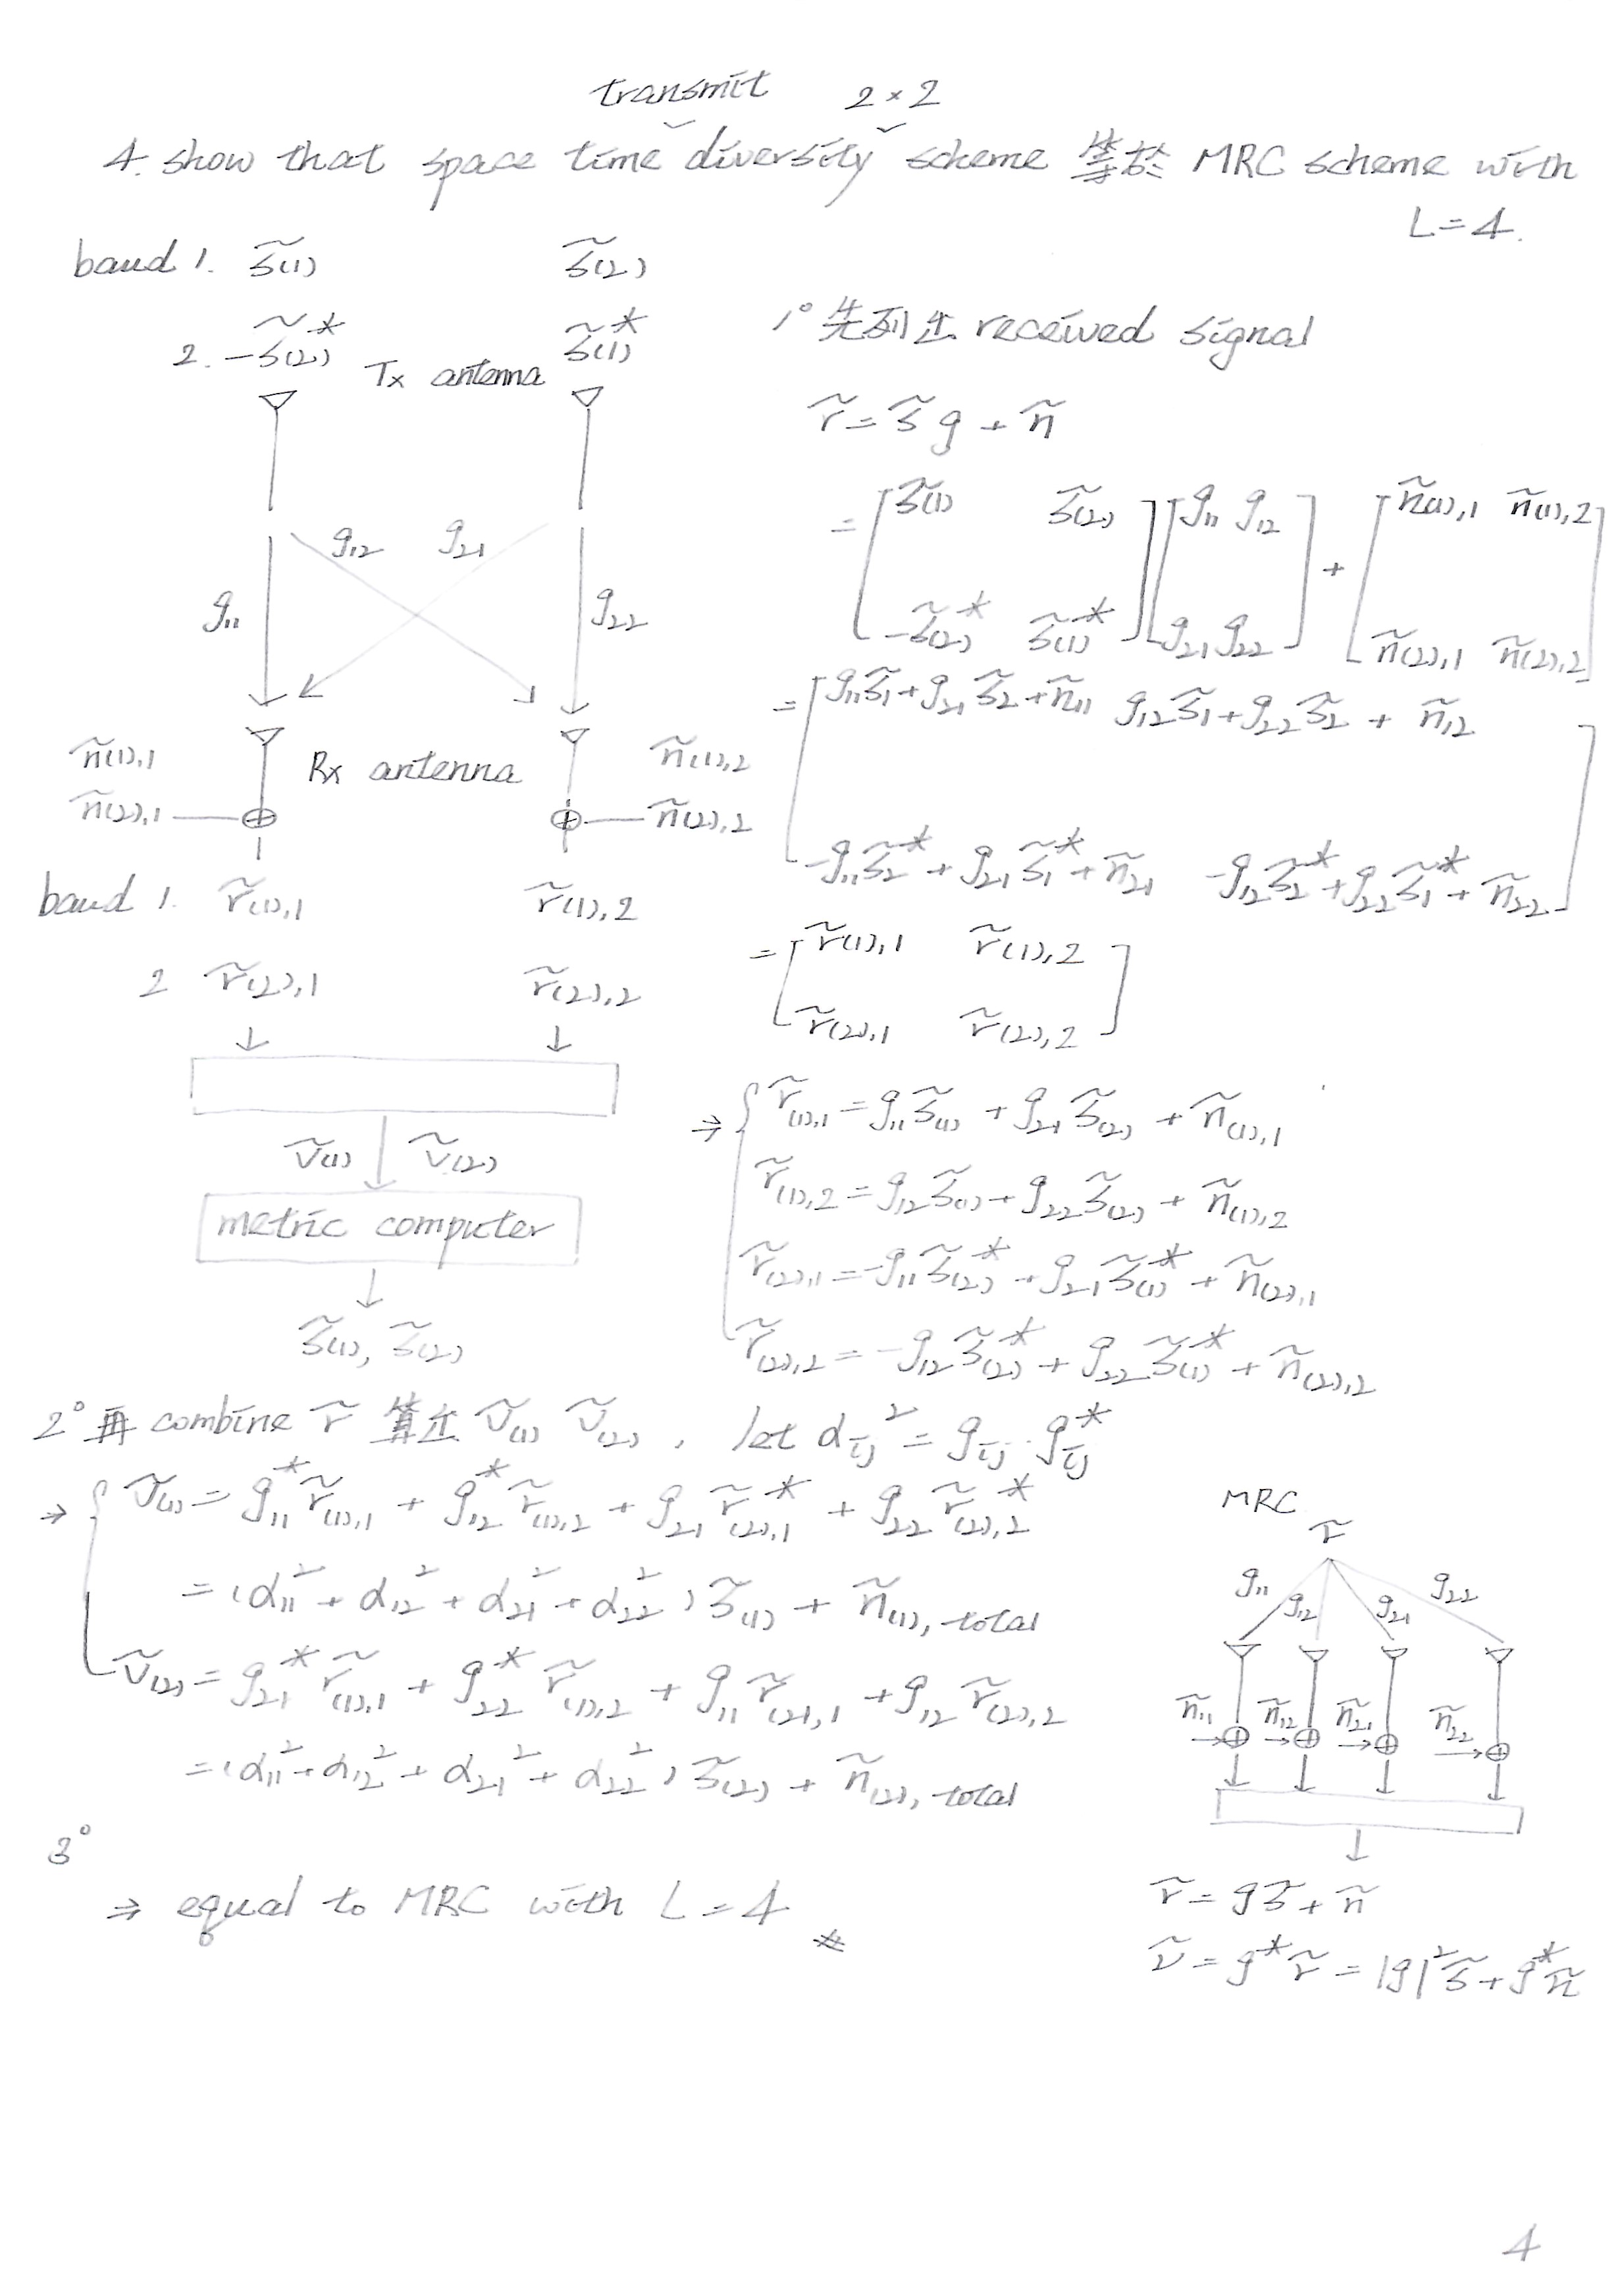 transmit 2×2
4. show that space time diversity scheme 等於 MRC scheme with
L=4.
baud 1. s̃(1) s̃(2)
2. -s̃(2)* s̃(1)*
Tx antenna
g11 g12 g21 g22
ñ(1),1 Rx antenna ñ(1),2
ñ(2),1 ñ(2),2
baud 1. r̃(1),1 r̃(1),2
2 r̃(2),1 r̃(2),2
ṽ(1) ṽ(2)
metric computer
s̃(1), s̃(2)
1° 先列出 received signal
r̃ = s̃ g + ñ
= [ s̃(1) s̃(2) ] [ g11 g12 ] + [ ñ(1),1 ñ(1),2 ]
[ -s̃(2)* s̃(1)* ] [ g21 g22 ] [ ñ(2),1 ñ(2),2 ]
= [ g11s̃1 + g21s̃2 + ñ11 g12s̃1 + g22s̃2 + ñ12
-g11s̃2* + g21s̃1* + ñ21 -g12s̃2* + g22s̃1* + ñ22 ]
= [ r̃(1),1 r̃(1),2
r̃(2),1 r̃(2),2 ]
⇒ { r̃(1),1 = g11s̃(1) + g21s̃(2) + ñ(1),1
r̃(1),2 = g12s̃(1) + g22s̃(2) + ñ(1),2
r̃(2),1 = -g11s̃(2)* + g21s̃(1)* + ñ(2),1
r̃(2),2 = -g12s̃(2)* + g22s̃(1)* + ñ(2),2
2° 再 combine r̃ 算出 ṽ(1) ṽ(2), let αij² = gij · gij*
⇒ { ṽ(1) = g11* r̃(1),1 + g12* r̃(1),2 + g21 r̃(2),1* + g22 r̃(2),2*
= (α11² + α12² + α21² + α22²) s̃(1) + ñ(1), total
ṽ(2) = g21* r̃(1),1 + g22* r̃(1),2 + g11 r̃(2),1 + g12 r̃(2),2
= (α11² + α12² + α21² + α22²) s̃(2) + ñ(2), total
3°
⇒ equal to MRC with L = 4 #
MRC
r̃
g11 g12 g21 g22
ñ11 ñ12 ñ21 ñ22
r̃ = g s̃ + ñ
ṽ = g* r̃ = |g|² s̃ + g* ñ
4